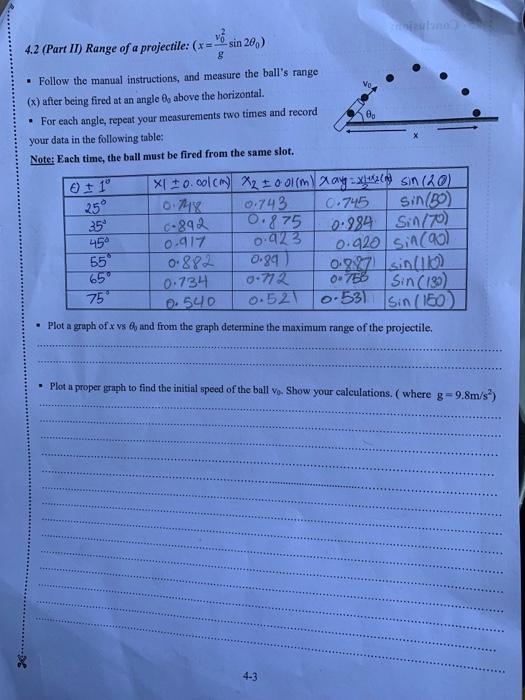 4.2 (Part II) Range of a projectile: (x = v₀²/g sin 2θ₀)
▪ Follow the manual instructions, and measure the ball's range
(x) after being fired at an angle θ₀ above the horizontal.
▪ For each angle, repeat your measurements two times and record
your data in the following table:
Note: Each time, the ball must be fired from the same slot.
V₀
θ₀
x
θ ± 1° x1 ± 0.001(m) x2 ± 0.01(m) xavg = x1+x2/2(m) sin(2θ)
25° 0.748 0.743 0.745 sin(50)
35° 0.892 0.875 0.884 sin(70)
45° 0.917 0.923 0.920 sin(90)
55° 0.882 0.891 0.887 sin(110)
65° 0.734 0.772 sin(130)
75° 0.540 0.521 0.531 sin(150)
▪ Plot a graph of x vs θ₀ and from the graph determine the maximum range of the projectile.
▪ Plot a proper graph to find the initial speed of the ball v₀. Show your calculations. ( where g = 9.8m/s²)
4-3